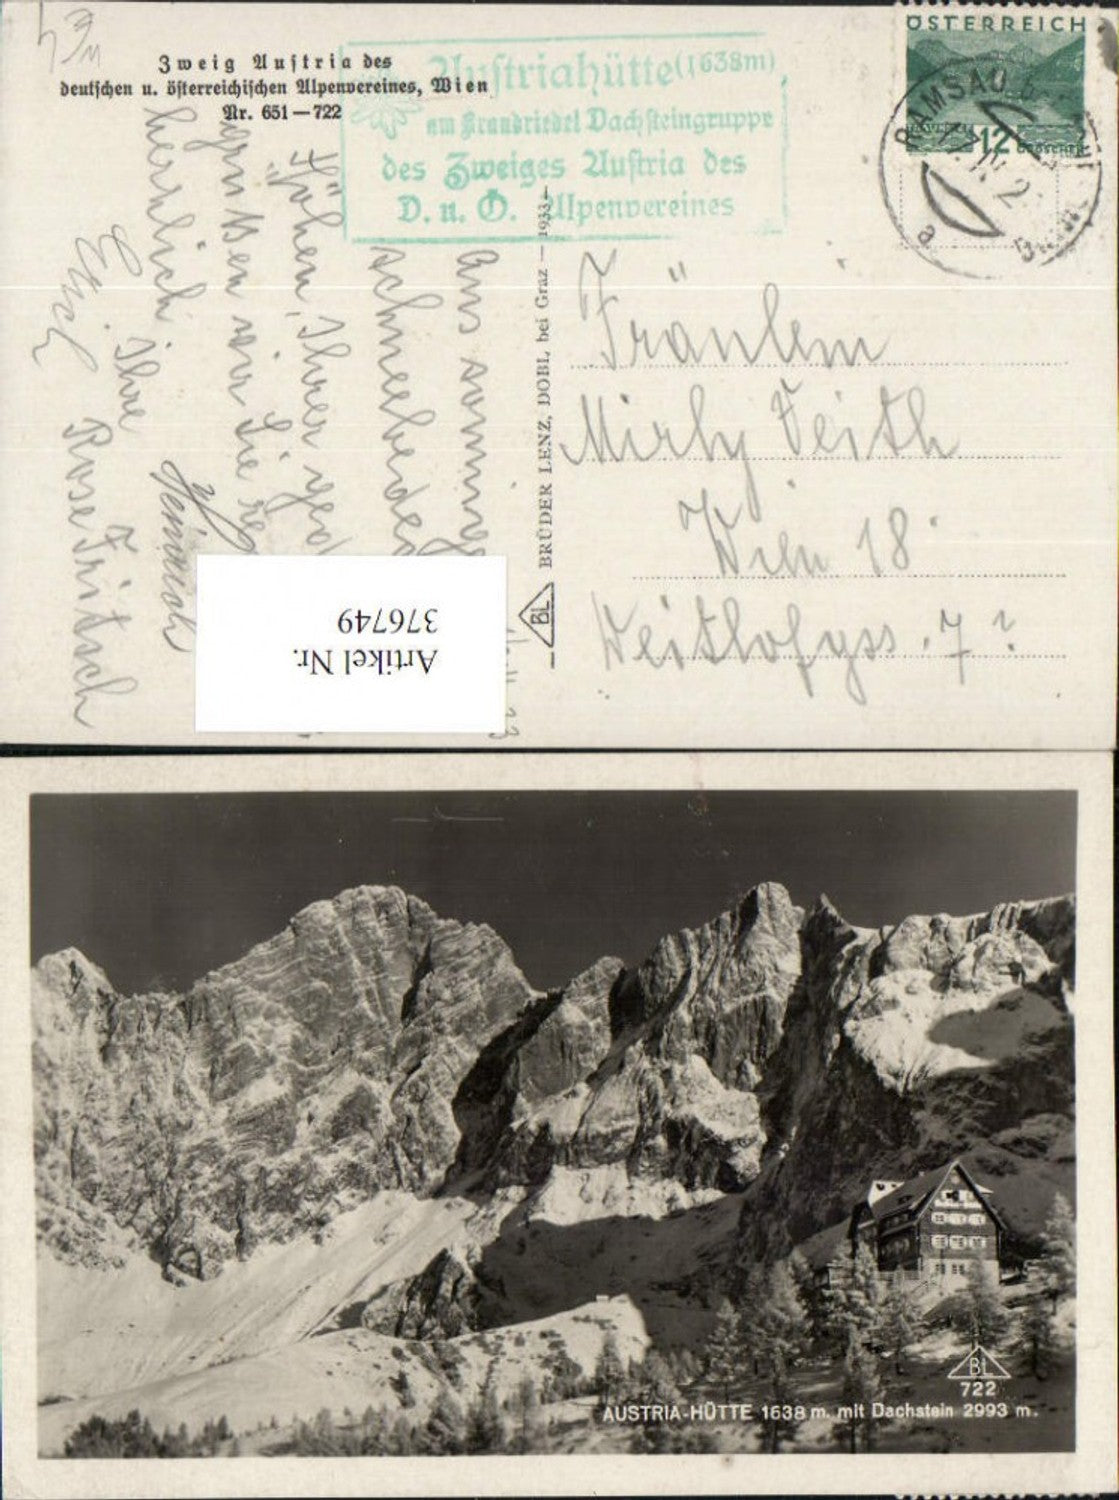 Zweig Austria des
deutschen u. österreichischen Alpenvereines, Wien
Nr. 651—722
Austriahütte (1638m)
am Brandriedel Dachsteingruppe
des Zweiges Austria des
D. u. Ö. Alpenvereines
ÖSTERREICH
12 GROSCHEN
RAMSAU
a
BRÜDER LENZ, DOBL bei Graz — 1933 —
BL
Fräulein
Mirly Veith
Wien 18
7?
Aus sonnigen
schneebedeck
Höhen, Ihrer ged
grüssen wir Sie
herzlich
Ihre
Heinrich
Rose Fritsch
Artikel Nr.
376749
BL
722
AUSTRIA-HÜTTE 1638 m. mit Dachstein 2993 m.